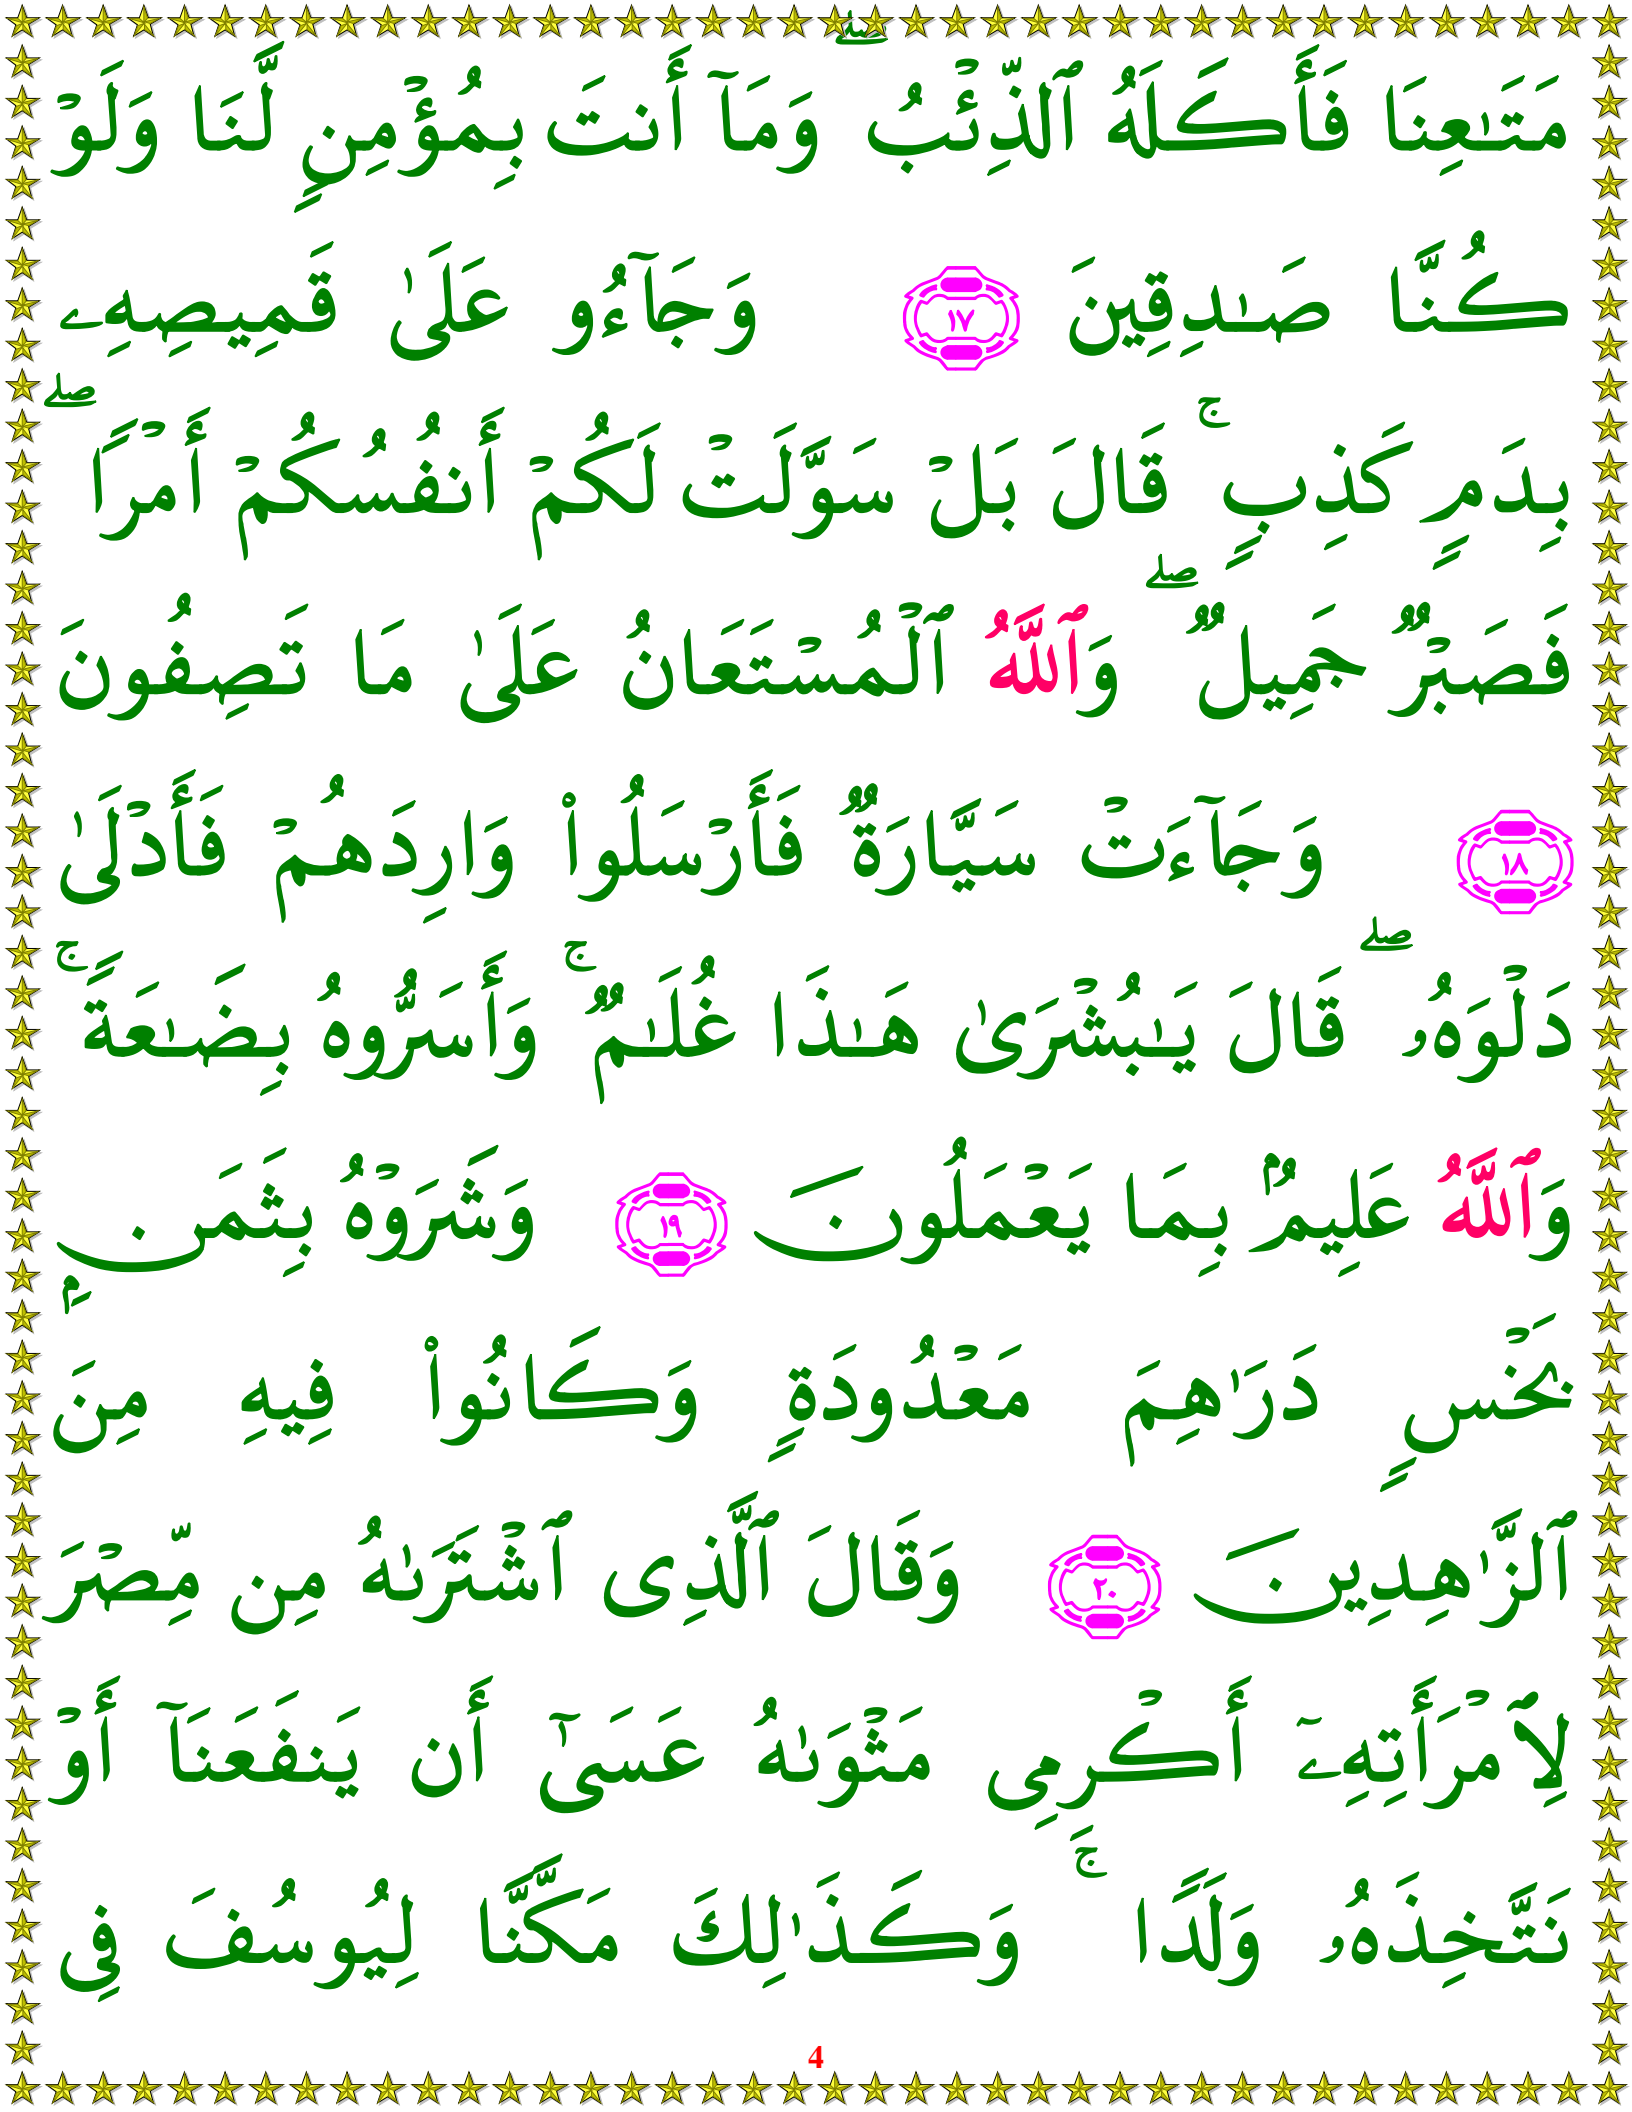 مَتَـٰعِنَا فَأَكَلَهُ ٱلذِّئْبُ ۖ وَمَآ أَنتَ بِمُؤْمِنٍ لَّنَا وَلَوْ
كُنَّا صَـٰدِقِينَ ١٧ وَجَآءُو عَلَىٰ قَمِيصِهِۦ
بِدَمٍ كَذِبٍ ۚ قَالَ بَلْ سَوَّلَتْ لَكُمْ أَنفُسُكُمْ أَمْرًا ۖ
فَصَبْرٌ جَمِيلٌ ۖ وَٱللَّهُ ٱلْمُسْتَعَانُ عَلَىٰ مَا تَصِفُونَ
١٨ وَجَآءَتْ سَيَّارَةٌ فَأَرْسَلُوا۟ وَارِدَهُمْ فَأَدْلَىٰ
دَلْوَهُۥ ۖ قَالَ يَـٰبُشْرَىٰ هَـٰذَا غُلَـٰمٌ ۚ وَأَسَرُّوهُ بِضَـٰعَةً ۚ
وَٱللَّهُ عَلِيمٌۢ بِمَا يَعْمَلُونَ ١٩ وَشَرَوْهُ بِثَمَنٍۭ
بَخْسٍ دَرَٰهِمَ مَعْدُودَةٍ وَكَانُوا۟ فِيهِ مِنَ
ٱلزَّٰهِدِينَ ٢٠ وَقَالَ ٱلَّذِى ٱشْتَرَىٰهُ مِن مِّصْرَ
لِٱمْرَأَتِهِۦٓ أَكْرِمِى مَثْوَىٰهُ عَسَىٰٓ أَن يَنفَعَنَآ أَوْ
نَتَّخِذَهُۥ وَلَدًا ۚ وَكَذَٰلِكَ مَكَّنَّا لِيُوسُفَ فِى
4